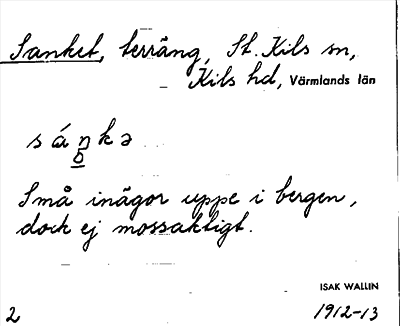 Sanket, terräng, St. Kils sn,
Kils hd, Värmlands län
sáŋkə
Små inägor uppe i bergen,
dock ej mossaktigt.
ISAK WALLIN
2 1912-13